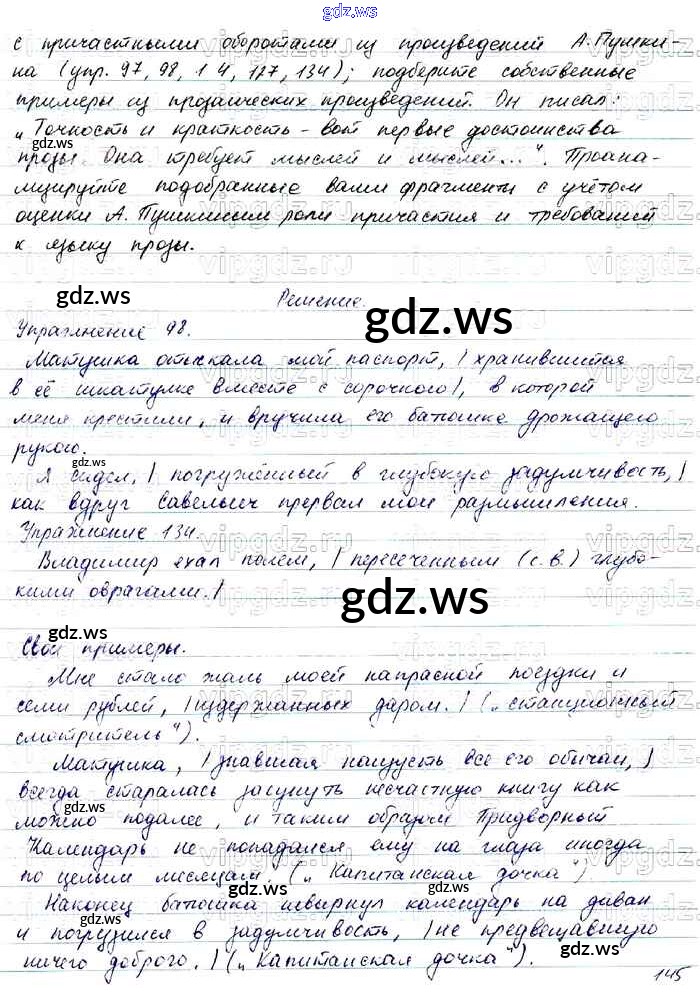 gdz.ws
с причастными оборотами из произведений А. Пушки-
на (упр. 97, 98, 1 4, 127, 134); подберите собственные
примеры из прозаических произведений. Он писал:
„Точность и краткость – вот первые достоинства
прозы. Она требует мыслей и мыслей...". Проана-
лизируйте подобранные вами фрагменты с учётом
оценки А. Пушкиным роли причастия и требований
к языку прозы.
Решение.
Упражнение 98.
Матушка отыскала мой паспорт, | хранившийся
в её шкатулке вместе с сорочкою |, в которой
меня крестили, и вручила его батюшке дрожащею
рукою.
Я сидел, | погружённый в глубокую задумчивость, |
как вдруг Савельич прервал мои размышления.
Упражнение 134.
Владимир ехал полем, | пересеченным (с.в.) глубо-
кими оврагами. |
Свои примеры.
Мне стало жаль моей напрасной поездки и
семи рублей, | издержанных даром. | („Станционный
смотритель").
Матушка, | знавшая наизусть все его обычаи, |
всегда старалась засунуть несчастную книгу как
можно подалее, и таким образом Придворный
Календарь не попадался ему на глаза иногда
по целым месяцам. („Капитанская дочка").
Наконец батюшка швырнул календарь на диван
и погрузился в задумчивость, | не предвещавшую
ничего доброго. | („Капитанская дочка").
145
gdz.ws
gdz.ws
gdz.ws
gdz.ws
gdz.ws
gdz.ws
gdz.ws
gdz.ws
gdz.ws
gdz.ws